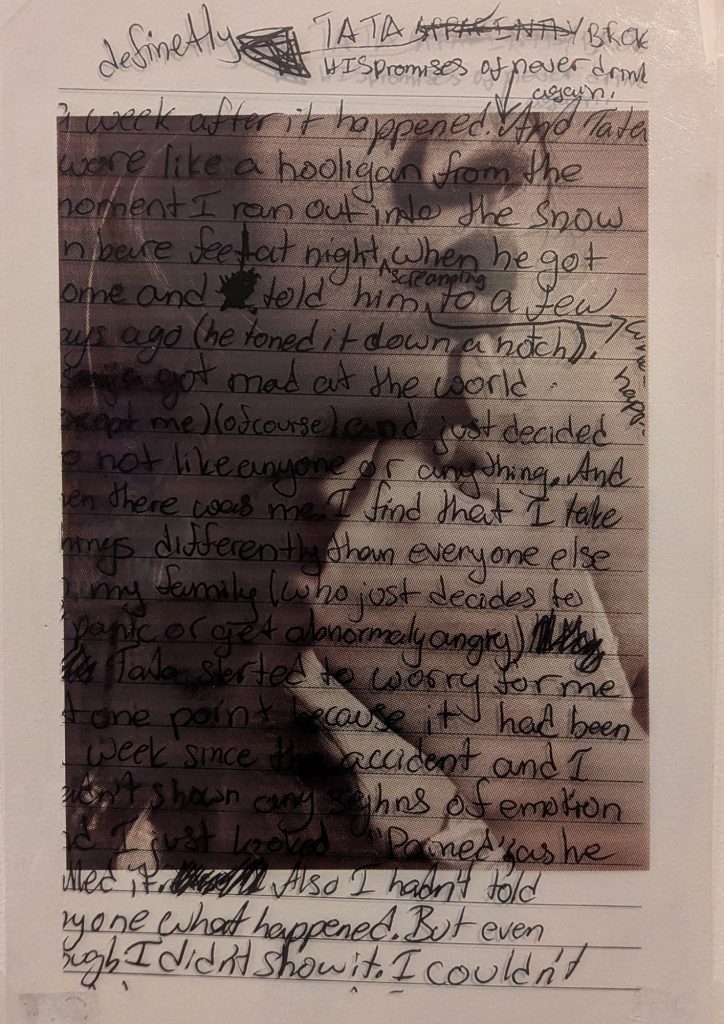 definetly TATA APPARENTLY BROK
HIS promises of never drink
again.
a week after it happened. And Tata
swore like a hooligan from the
moment I ran out into the snow
n bare feet at night, when he got
ome and told him, screamping to a few
ays ago (he toned it down a notch).
got mad at the world
xcept me) (ofcourse) and just decided
o not like anyone or anything. And
en there was me. I find that I take
hings differently than everyone else
n my family (who just decides to
panic or get abnormaly angry)
Tata started to worry for me
t one point because it had been
week since the accident and I
adn't shown any sighns of emotion
nd I just looked "Pained", as he
lled it. Also I hadn't told
nyone what happened. But even
ough I didn't show it. I couldn't